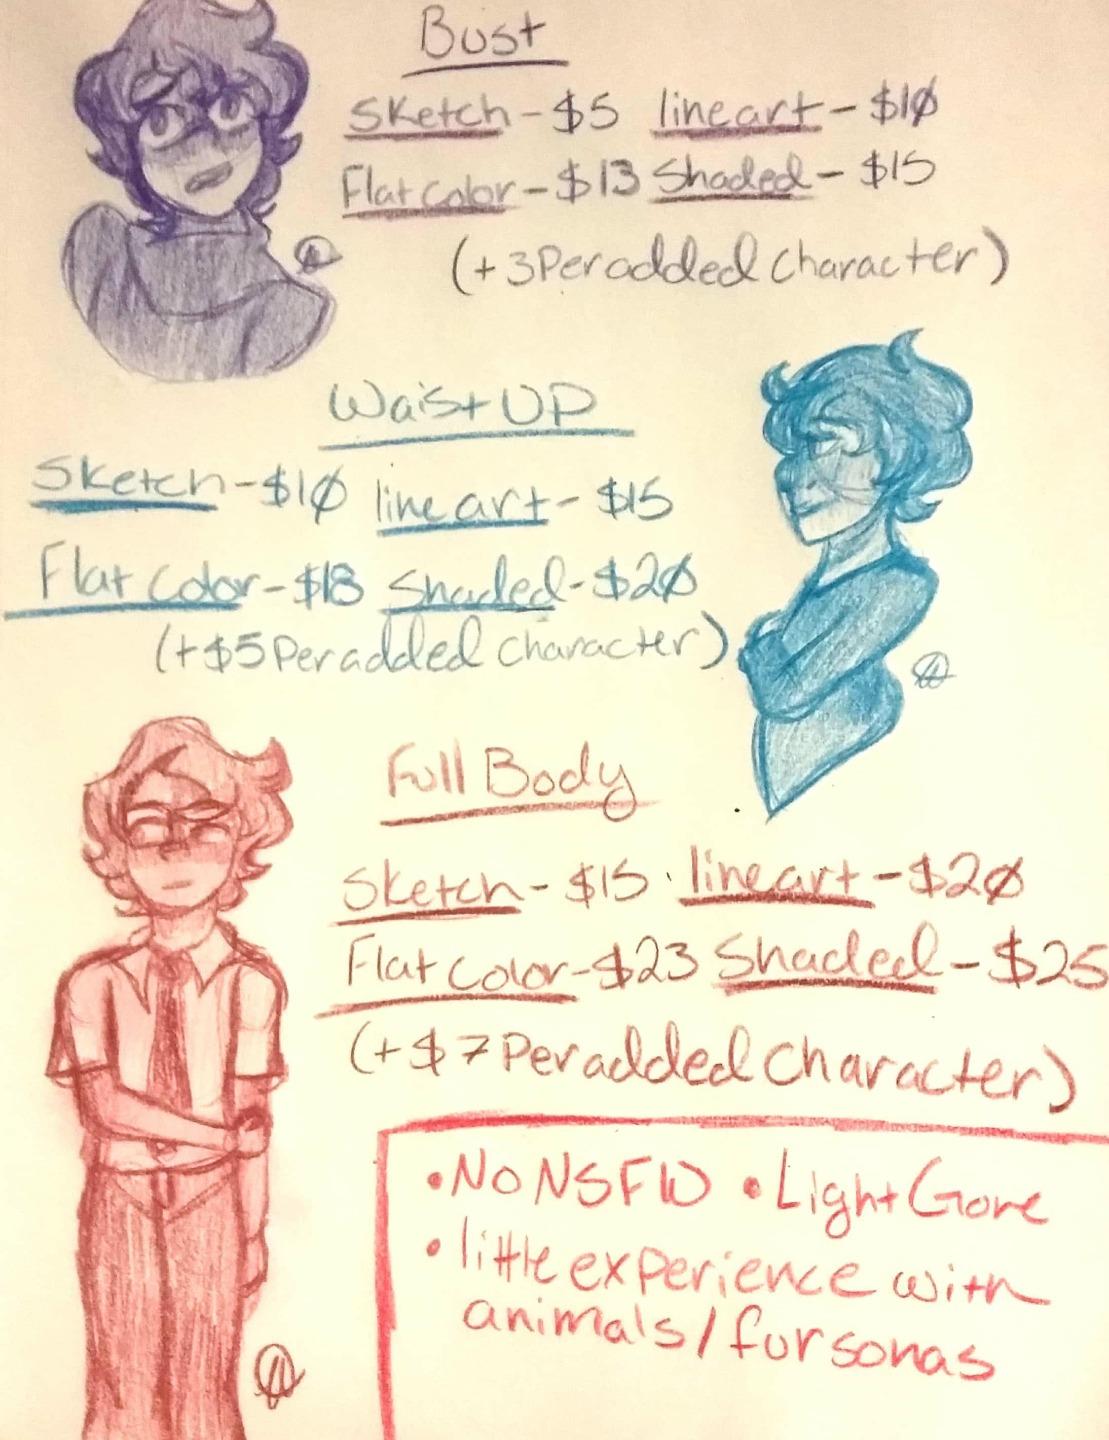 Bust
Sketch-$5 lineart-$10
Flat Color-$13 Shaded-$15
(+3 Per added Character)
Waist UP
Sketch-$10 lineart-$15
Flat Color-$18 Shaded-$20
(+$5 Per added Character)
Full Body
Sketch-$15 · lineart-$20
Flat Color-$23 Shaded-$25
(+$7 Per added Character)
•No NSFW •Light Gore
•little experience with
animals/fursonas